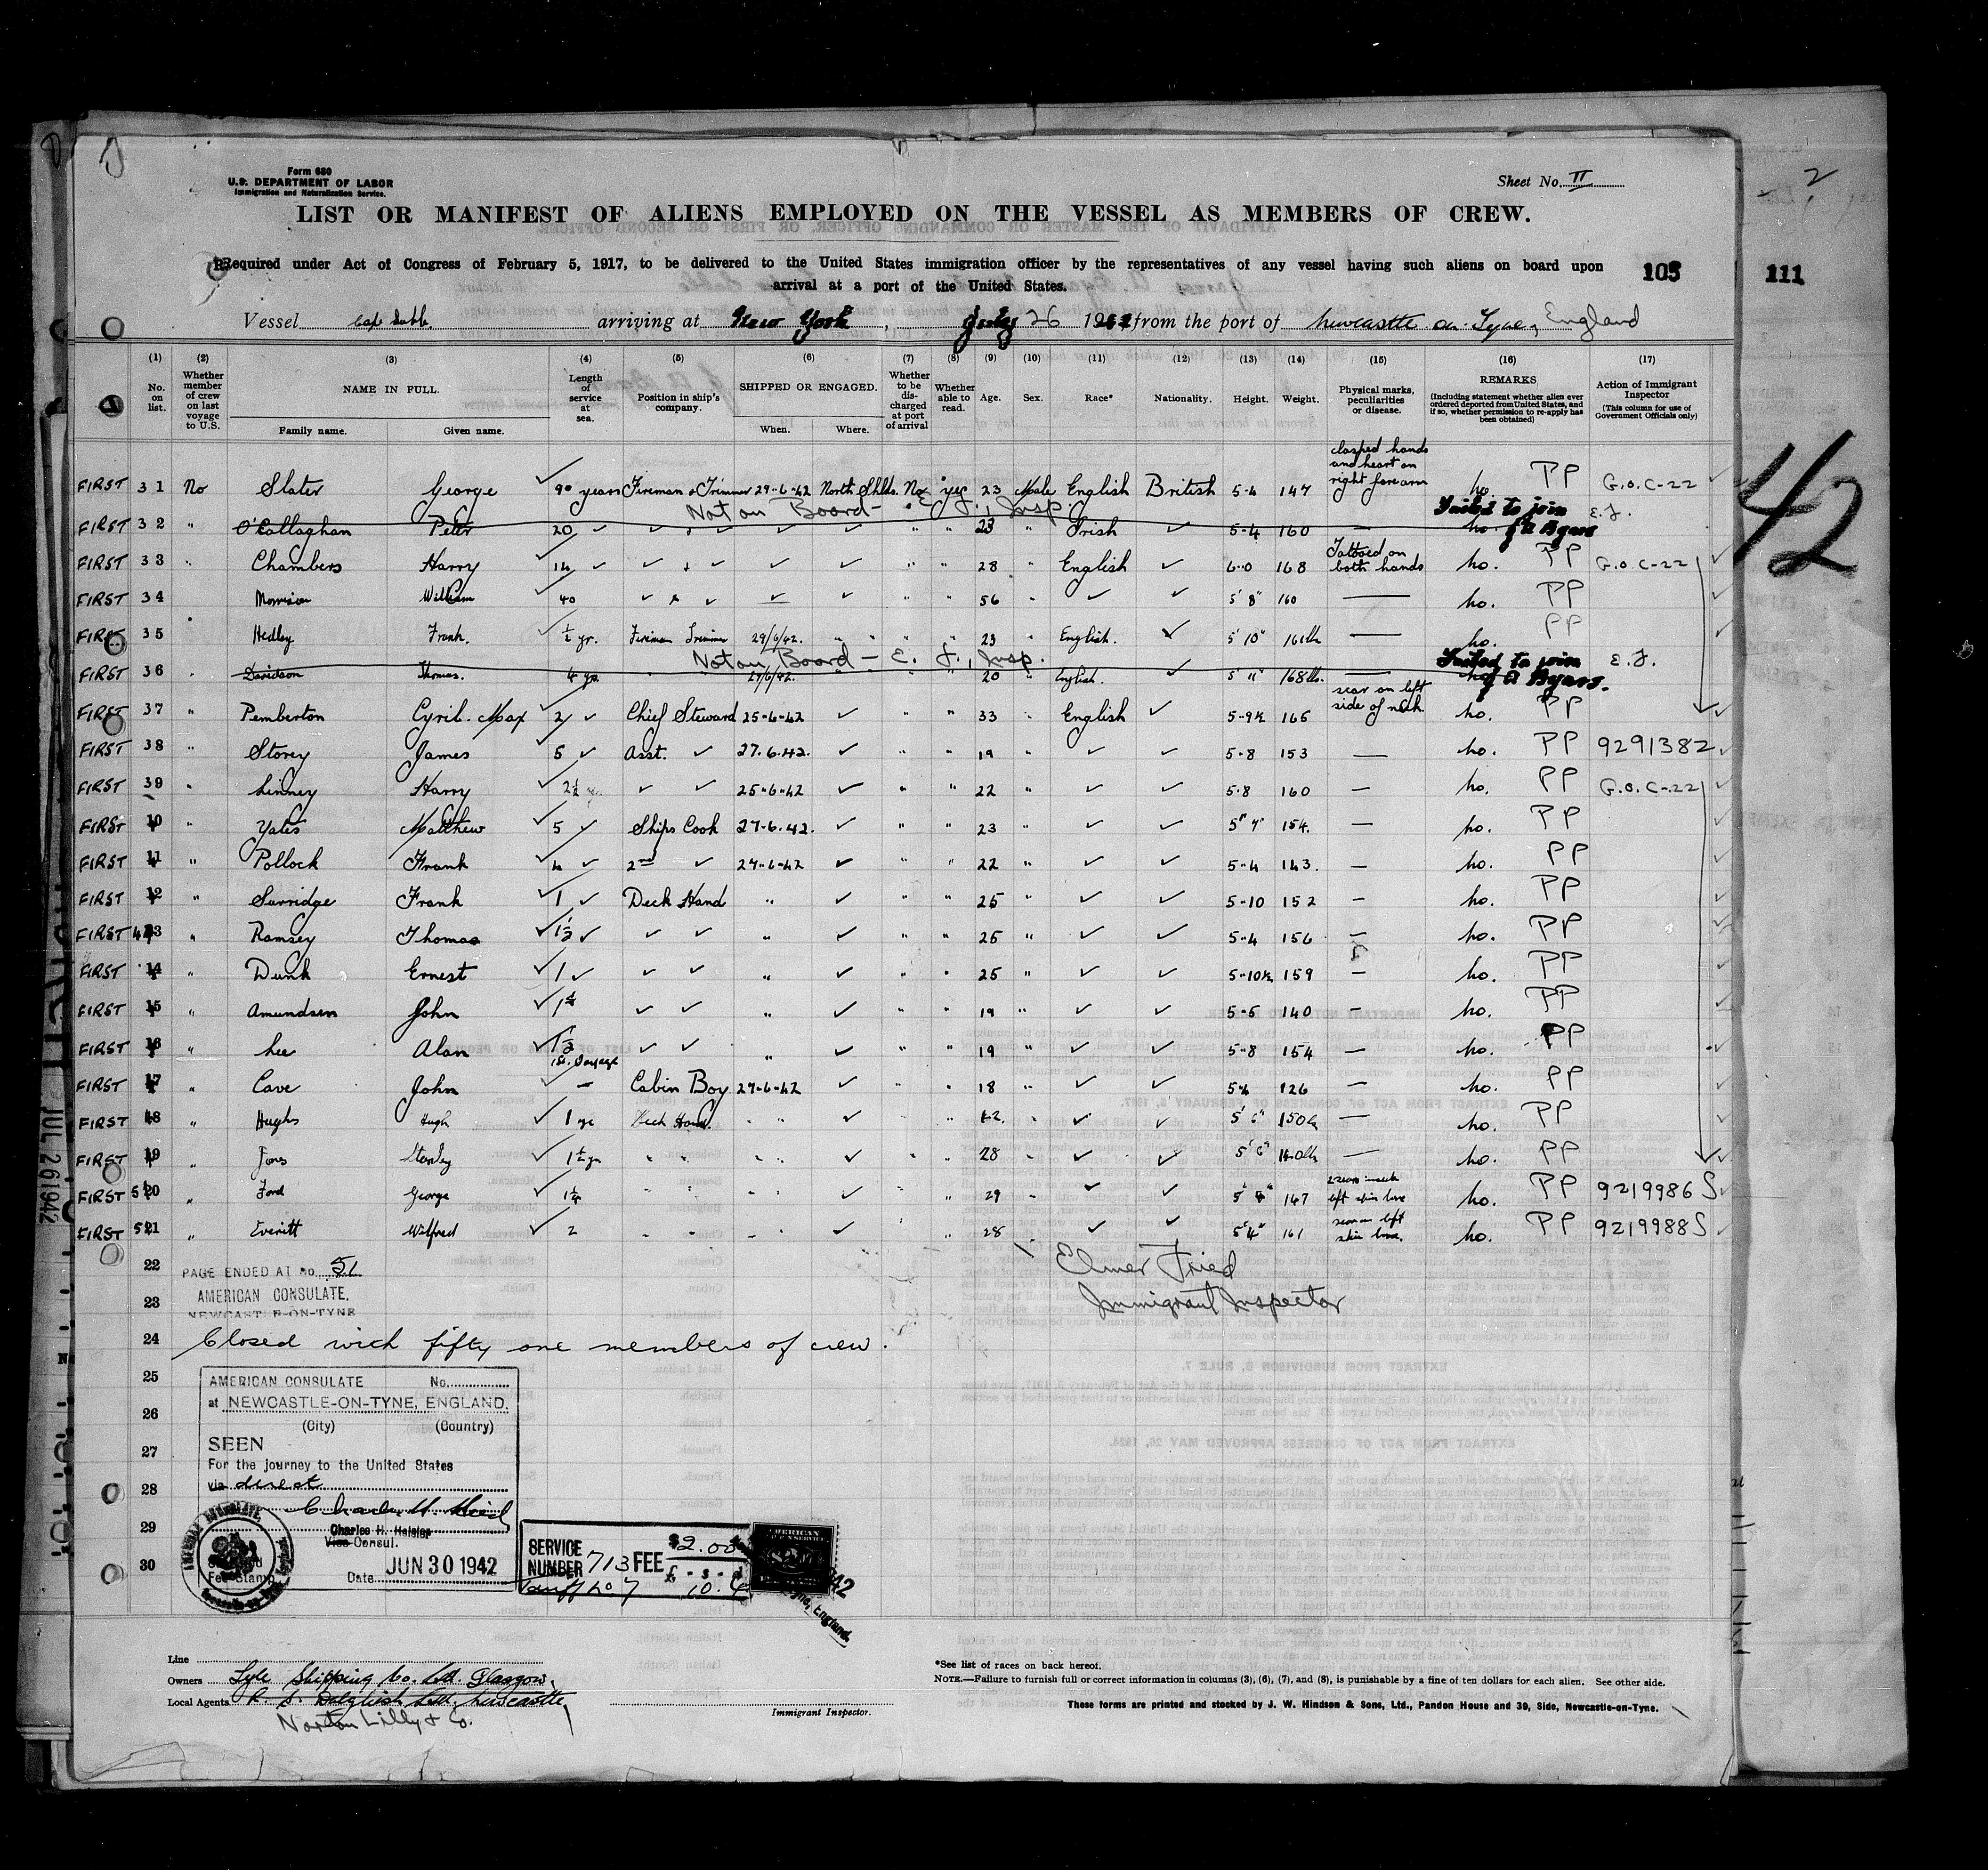 Form 680
U.S. DEPARTMENT OF LABOR
Immigration and Naturalization Service.
Sheet No. II
LIST OR MANIFEST OF ALIENS EMPLOYED ON THE VESSEL AS MEMBERS OF CREW.
Required under Act of Congress of February 5, 1917, to be delivered to the United States immigration officer by the representatives of any vessel having such aliens on board upon
arrival at a port of the United States.
105
111
Vessel arriving at New York, July 26 19 from the port of Newcastle on Tyne, England
(1) (2) (3) (4) (5) (6) (7) (8) (9) (10) (11) (12) (13) (14) (15) (16) (17)
No. on list. Whether member of crew on last voyage to U.S. NAME IN FULL. Family name. Given name. Length of service at sea. Position in ship's company. SHIPPED OR ENGAGED. When. Where. Whether to be discharged at port of arrival Whether able to read. Age. Sex. Race* Nationality. Height. Weight. Physical marks, peculiarities or disease. REMARKS (Including statement whether alien ever ordered deported from United States, and if so, whether permission to re-apply has been obtained) Action of Immigrant Inspector (This column for use of Government Officials only)
clasped hands and heart on right forearm
FIRST 31 No Slater George ✓ years Fireman & Trimmer 29-6-42 North Shlds. No yes 23 Male English British 5-4 147 No. PP G.O.C-22 ✓
Not on Board - E. F., Insp. Failed to join E.F.
FIRST 32 " O'Callaghan Peter 20 ✓ ✓ & ✓ ✓ ✓ " " 23 " Irish ✓ 5-4 160 — No. J A Byars
FIRST 33 " Chambers Harry ✓ 14 ✓ ✓ & ✓ ✓ ✓ " " 28 " English ✓ 6-0 168 Tattooed on both hands No. PP G.O.C-22 ✓
FIRST 34 " Morrison William ✓ 40 ✓ & ✓ ✓ ✓ " " 56 " ✓ ✓ 5' 8" 160 — No. PP ✓
FIRST 35 " Hedley Frank. ✓ ½ yr. Fireman Trimmer 29/6/42. " " " " 23 " English. ✓ 5' 10" 161lb — No. PP ✓
Not on Board - E. F., Insp. Failed to join E.F.
FIRST 36 " Davidson Thomas. 4 yr. 29/6/42. " " 20 " English. ✓ 5' 11" 168lbs. — J A Byars.
FIRST 37 " Pemberton Cyril. Max ✓ 2 ✓ Chief Steward 25-6-42 ✓ " " 33 " English ✓ 5-9½ 165 scar on left side of neck No. PP ✓
FIRST 38 " Storey James ✓ 5 ✓ Asst. ✓ 27.6.42. ✓ " " 19 " ✓ ✓ 5-8 153 — No. PP 9291382 ✓
FIRST 39 " Linney Harry ✓ 2½ ✓ ✓ 25-6-42 ✓ " " 22 " ✓ ✓ 5-8 160 — No. PP G.O.C-22 ✓
FIRST 10 " Yates Matthew ✓ 5 ✓ Ships Cook 27-6-42. ✓ " " 23 " ✓ ✓ 154. — No. PP ✓
FIRST 11 " Pollock Frank ✓ 4 ✓ 2nd ✓ 27-6-42 ✓ " " 22 " ✓ ✓ 5-4 143. — No. PP ✓
FIRST 12 " Surridge Frank ✓ 1 ✓ Deck Hand " ✓ " " 25 " ✓ ✓ 5-10 152 — No. PP ✓
FIRST 43 " Ramsey Thomas ✓ 1½ ✓ ✓ ✓ " ✓ " " 25 " ✓ ✓ 5-4 156 — No. PP ✓
FIRST 14 " Dunk Ernest ✓ 1 ✓ ✓ ✓ " ✓ " " 25 " ✓ ✓ 5-10½ 159 — No. PP ✓
FIRST 15 " Amundsen John ✓ ✓ ✓ " ✓ " " 19 " ✓ ✓ 5-5 140 — No. PP ✓
FIRST 16 " Lee Alan ✓ 1½ ✓ ✓ " ✓ " " 19 " ✓ ✓ 5-8 154 — No. PP ✓
1st. Voyage
FIRST 17 " Cave John ✓ — Cabin Boy 27-6-42 ✓ " " 18 " ✓ ✓ 5-4 126 — No. PP ✓
FIRST 18 " Hughs Hugh ✓ 1 yr Deck Hand. " " ✓ " " " ✓ ✓ — No. PP ✓
FIRST 19 " Jones Stanley ✓ 1½ yr " " " " ✓ " " 28 " ✓ ✓ 140lbs — No. PP ✓
FIRST 20 " Ford George ✓ 1¼ " " " " ✓ " " 29 " ✓ ✓ 147 left shin bone No. PP 9219986 S ✓
FIRST 21 " Everitt Wilfred ✓ 2 " " " " ✓ " " 28 " ✓ ✓ 5'4" 161 scar on left shin bone. No. PP 9219988 S ✓
22 PAGE ENDED AT No. 51
AMERICAN CONSULATE,
23 NEWCASTLE-ON-TYNE
Elmer Fried
Immigrant Inspector
24 Closed with fifty one members of crew.
25
26
27
28
29
30
AMERICAN CONSULATE No.
at NEWCASTLE-ON-TYNE, ENGLAND.
(City) (Country)
SEEN
For the journey to the United States
via direct
Charles H. Heisler
Vice Consul.
Date JUN 30 1942
SERVICE NUMBER 713 FEE $2.00
£ - s - d
Tariff No 7 10.4
JUL 26 1942
42
Line
Owners Lyle Shipping Co. Ltd. Glasgow.
Local Agents R. S. Dalgliesh Ltd. Newcastle
Norton Lilly & Co.
Immigrant Inspector.
*See list of races on back hereof.
NOTE.—Failure to furnish full or correct information in columns (3), (6), (7), and (8), is punishable by a fine of ten dollars for each alien. See other side.
These forms are printed and stocked by J. W. Hindson & Sons, Ltd., Pandon House and 39, Side, Newcastle-on-Tyne.